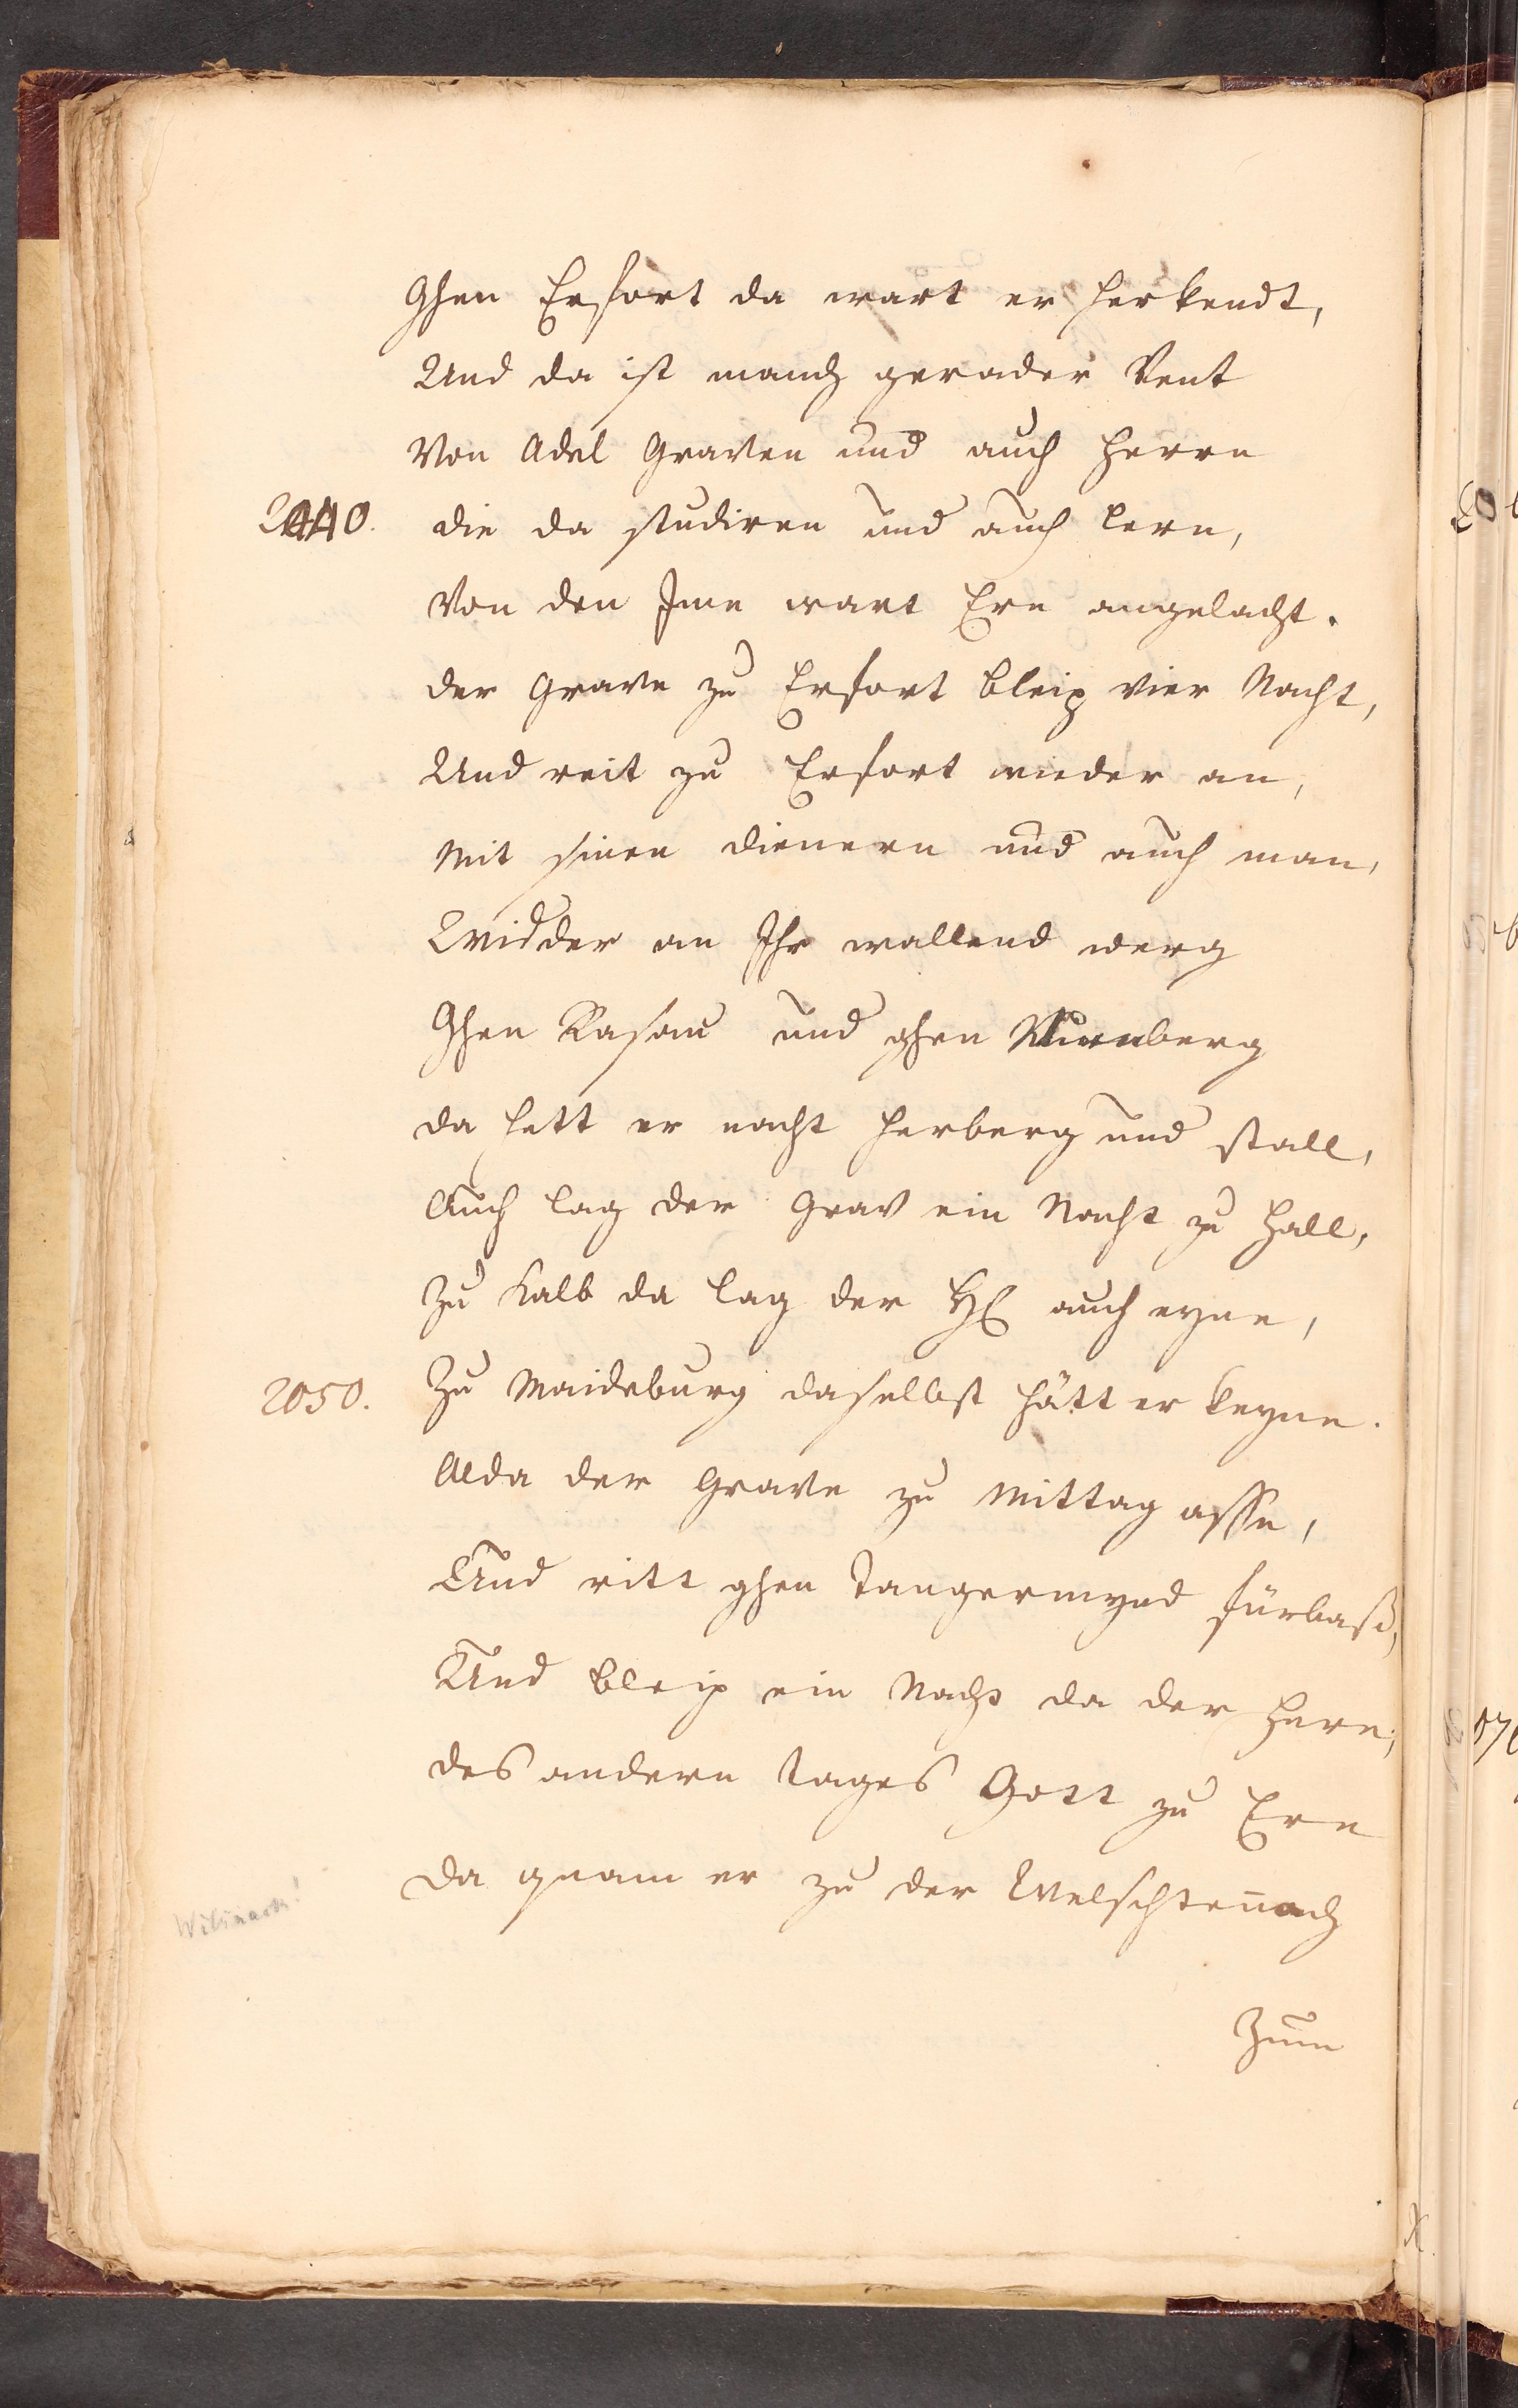 Ghen Erfort da wart er herkendt,
Und da ist manch gerader Vent
Von Adel Graven und auch Herrn
2040. die da studiren und auch lern,
Von den Jme wart Ere angelacht.
der Grave zu Erfort bleip vier Nacht,
Und reit zu Erfort wieder an,
Mit sinen dienern und auch man,
Widder an Ihr wallend werg
Ghen und ghen Nurnberg
da hett er nacht herberg und stall,
Auch lag der Grav ein Nacht zu Hall,
Zu Kalb da lag der H auch eyne,
2050. Zu Maideburg daselbst hätt er keyne.
Alda der Grave zu Mittag asse,
Und ritt ghen Tangermynd fürbass,
Und bleip ein Nacht da der Here,
des andern tages Gott zu Ere
Da quam er zu der Welschtenach
Wilsnach!
Zum